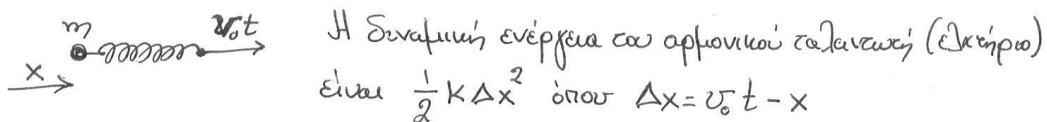 m v₀t Η δυναμική ενέργεια του αρμονικού ταλαντωτή (ελατήριο)
x είναι ½ K Δx² όπου Δx = v₀t - x